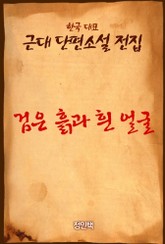 한국 대표
근대 단편소설 전집
검은 흙과 흰 얼굴
정인택